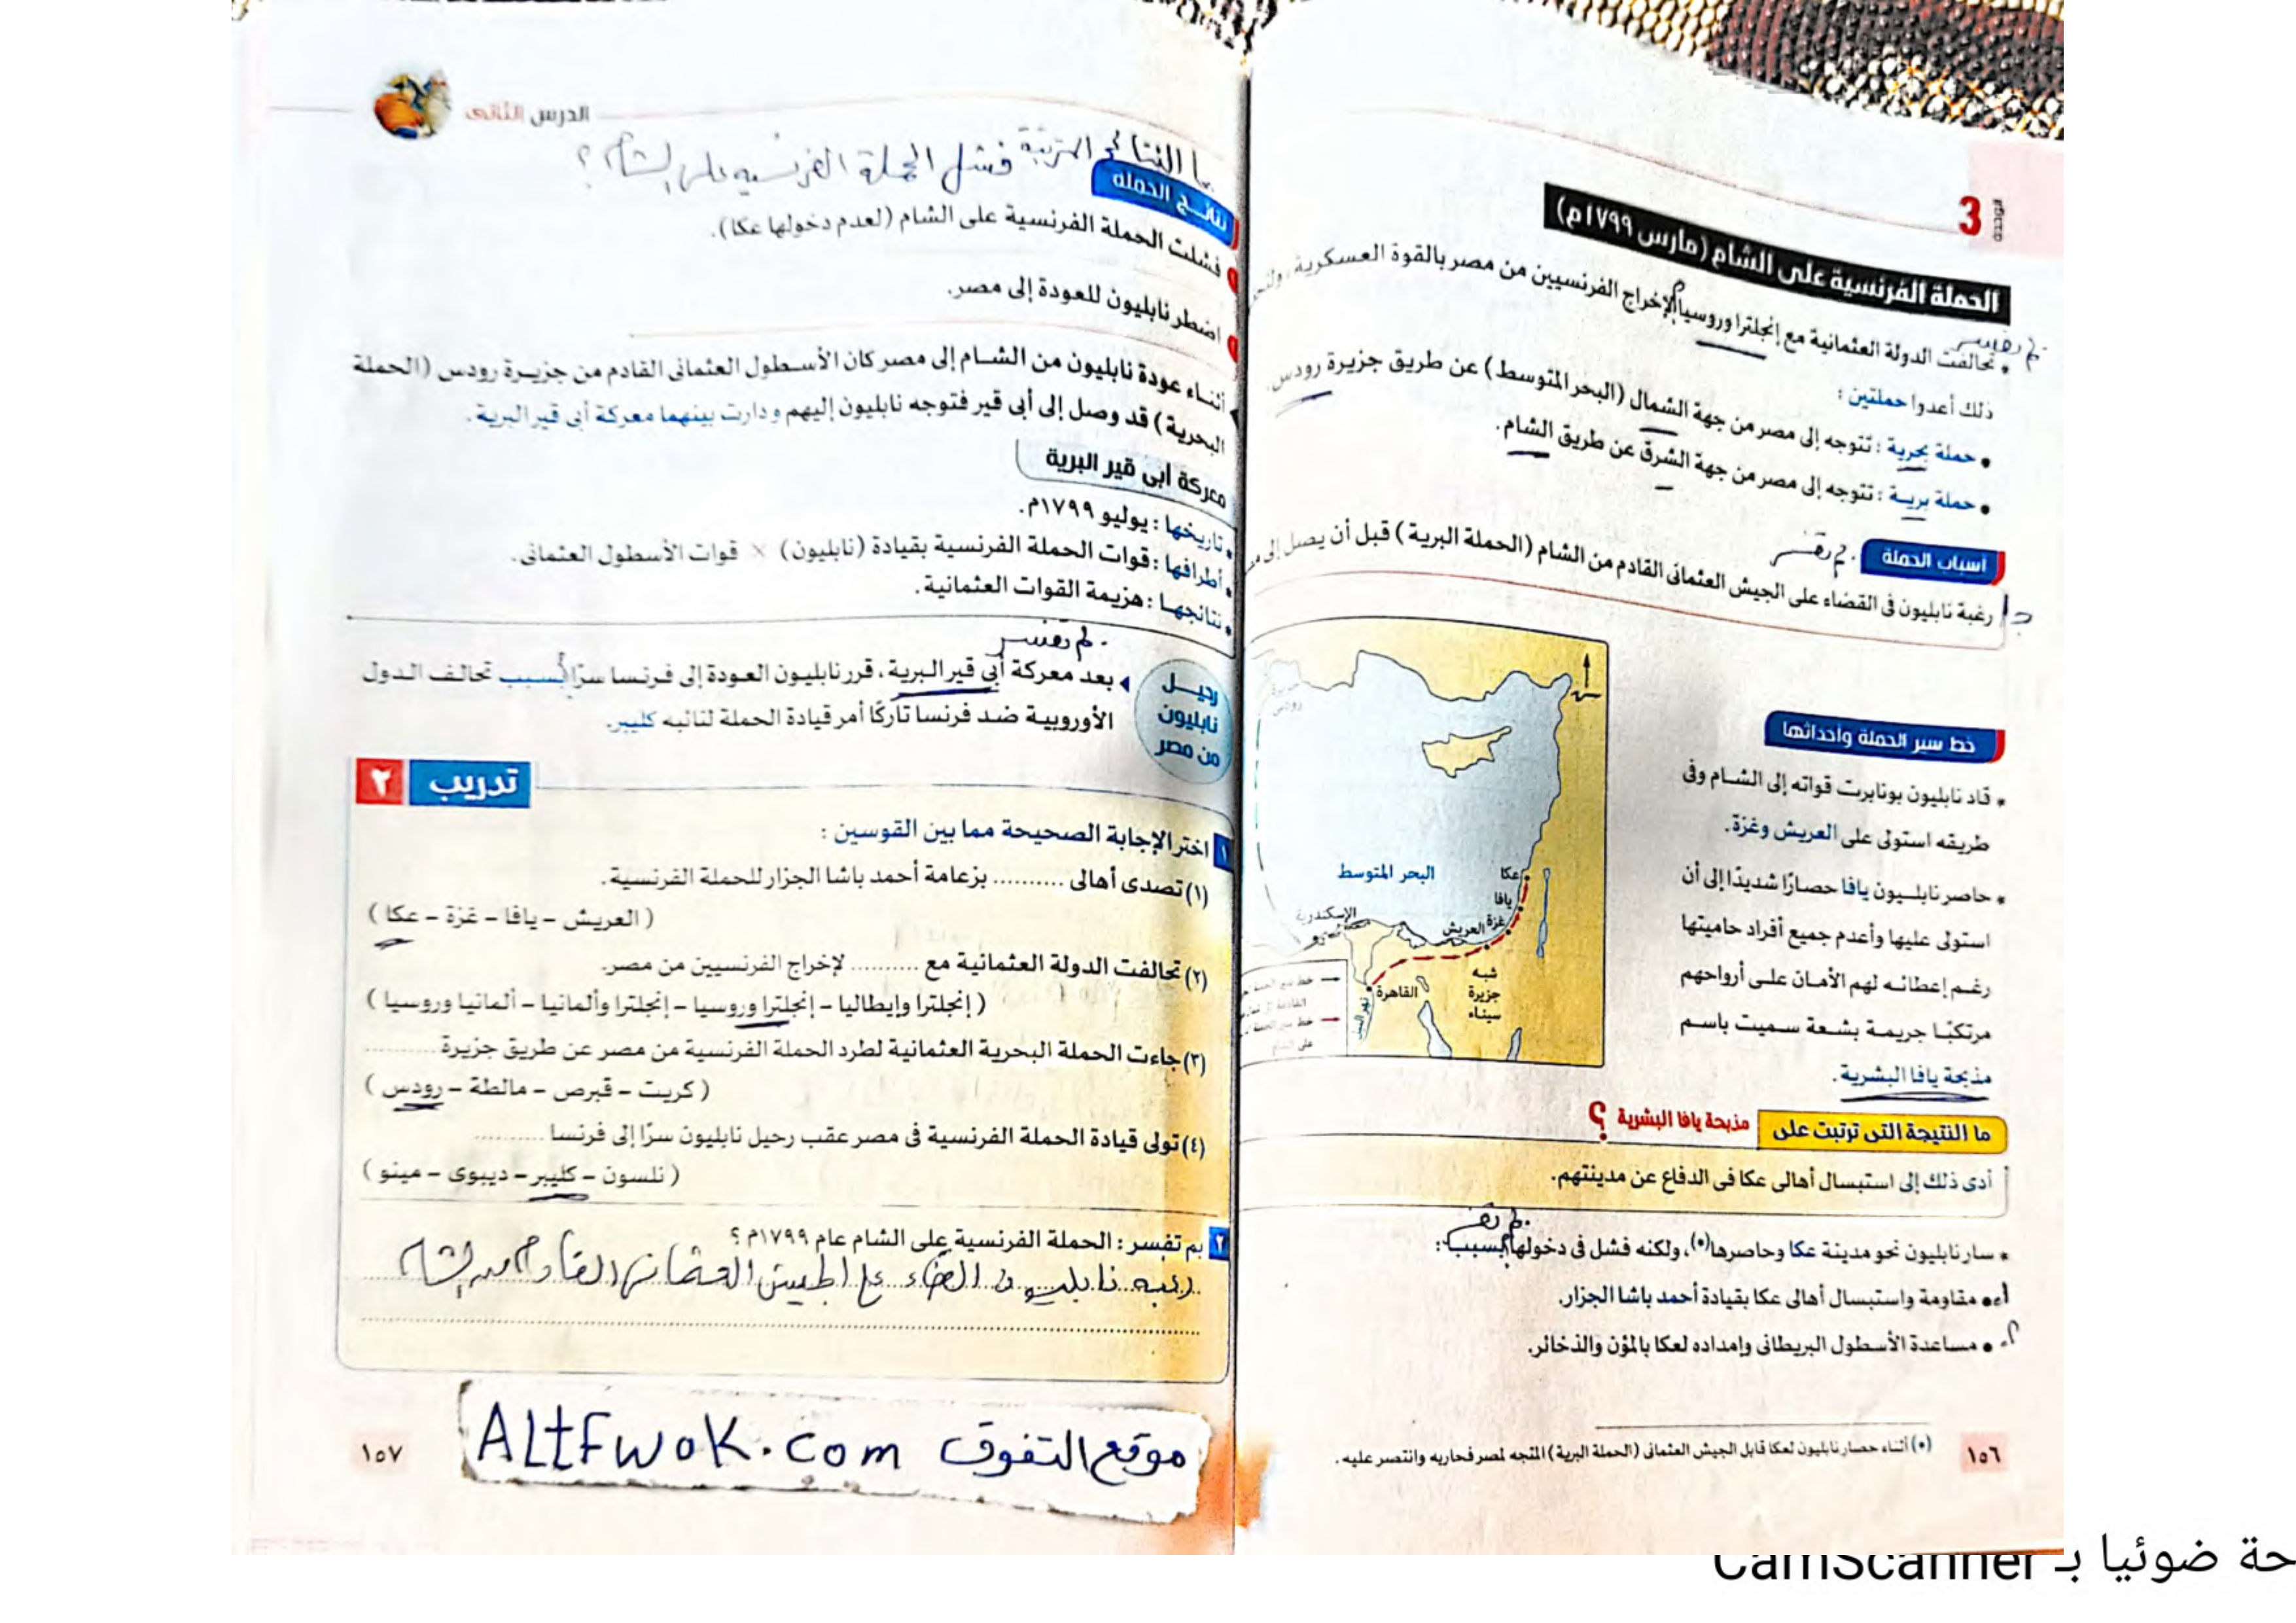 3
الوحدة
الحملة الفرنسية على الشام (مارس ١٧٩٩م)
بم تفسر
• تحالفت الدولة العثمانية مع إنجلترا وروسيا لإخراج الفرنسيين من مصر بالقوة العسكرية،
ذلك أعدوا حملتين :
• حملة بحرية : تتوجه إلى مصر من جهة الشمال (البحر المتوسط) عن طريق جزيرة رودس.
• حملة برية : تتوجه إلى مصر من جهة الشرق عن طريق الشام.
أسباب الحملة
بم تفسر
جـ/ رغبة نابليون فى القضاء على الجيش العثمانى القادم من الشام (الحملة البرية) قبل أن يصل إلى
خط سير الحملة وأحداثها
• قاد نابليون بونابرت قواته إلى الشام وفى
طريقه استولى على العريش وغزة.
• حاصر نابليون يافا حصارًا شديدًا إلى أن
استولى عليها وأعدم جميع أفراد حاميتها
رغم إعطائه لهم الأمان على أرواحهم
مرتكبًا جريمة بشعة سميت باسم
مذبحة يافا البشرية.
جزيرة
رودس
البحر المتوسط
عكا
يافا
غزة
العريش
الإسكندرية
القاهرة
شبه
جزيرة
سيناء
نهر النيل
على الشام
ما النتيجة التى ترتبت على مذبحة يافا البشرية ؟
أدى ذلك إلى استبسال أهالى عكا فى الدفاع عن مدينتهم.
بم تفسر
* سار نابليون نحو مدينة عكا وحاصرها(•)، ولكنه فشل فى دخولها بسبب :
١- • مقاومة واستبسال أهالى عكا بقيادة أحمد باشا الجزار.
٢- • مساعدة الأسطول البريطانى وإمداده لعكا بالمؤن والذخائر.
(•) أثناء حصار نابليون لعكا قابل الجيش العثمانى (الحملة البرية) المتجه لمصر فحاربه وانتصر عليه.
١٥٦
الدرس الثانى
ما النتائج المترتبة فشل الحملة الفرنسية على الشام ؟
نتائج الحملة
١ فشلت الحملة الفرنسية على الشام (لعدم دخولها عكا).
٢ اضطر نابليون للعودة إلى مصر.
أثناء عودة نابليون من الشام إلى مصر كان الأسطول العثمانى القادم من جزيرة رودس (الحملة
البحرية) قد وصل إلى أبى قير فتوجه نابليون إليهم ودارت بينهما معركة أبى قير البرية.
معركة أبى قير البرية
• تاريخها : يوليو ١٧٩٩م.
• أطرافها : قوات الحملة الفرنسية بقيادة (نابليون) × قوات الأسطول العثمانى.
• نتائجها : هزيمة القوات العثمانية.
بم تفسر
رحيل
نابليون
من مصر
بعد معركة أبى قير البرية، قرر نابليون العودة إلى فرنسا سرًا بسبب تحالف الدول
الأوروبية ضد فرنسا تاركًا أمر قيادة الحملة لنائبه كليبر.
تدريب ٢
١ اختر الإجابة الصحيحة مما بين القوسين :
(١) تصدى أهالى .......... بزعامة أحمد باشا الجزار للحملة الفرنسية.
( العريش – يافا – غزة – عكا )
(٢) تحالفت الدولة العثمانية مع .......... لإخراج الفرنسيين من مصر.
( إنجلترا وإيطاليا – إنجلترا وروسيا – إنجلترا وألمانيا – ألمانيا وروسيا )
(٣) جاءت الحملة البحرية العثمانية لطرد الحملة الفرنسية من مصر عن طريق جزيرة ..........
( كريت – قبرص – مالطة – رودس )
(٤) تولى قيادة الحملة الفرنسية فى مصر عقب رحيل نابليون سرًا إلى فرنسا ..........
( نلسون – كليبر – ديبوى – مينو )
٢ بم تفسر : الحملة الفرنسية على الشام عام ١٧٩٩م ؟
رغبه نابليون فى القضاء على الجيش العثمانى القادم من الشام
موقع التفوق ALtFwoK.com
١٥٧
حة ضوئيا بـ CamScanner